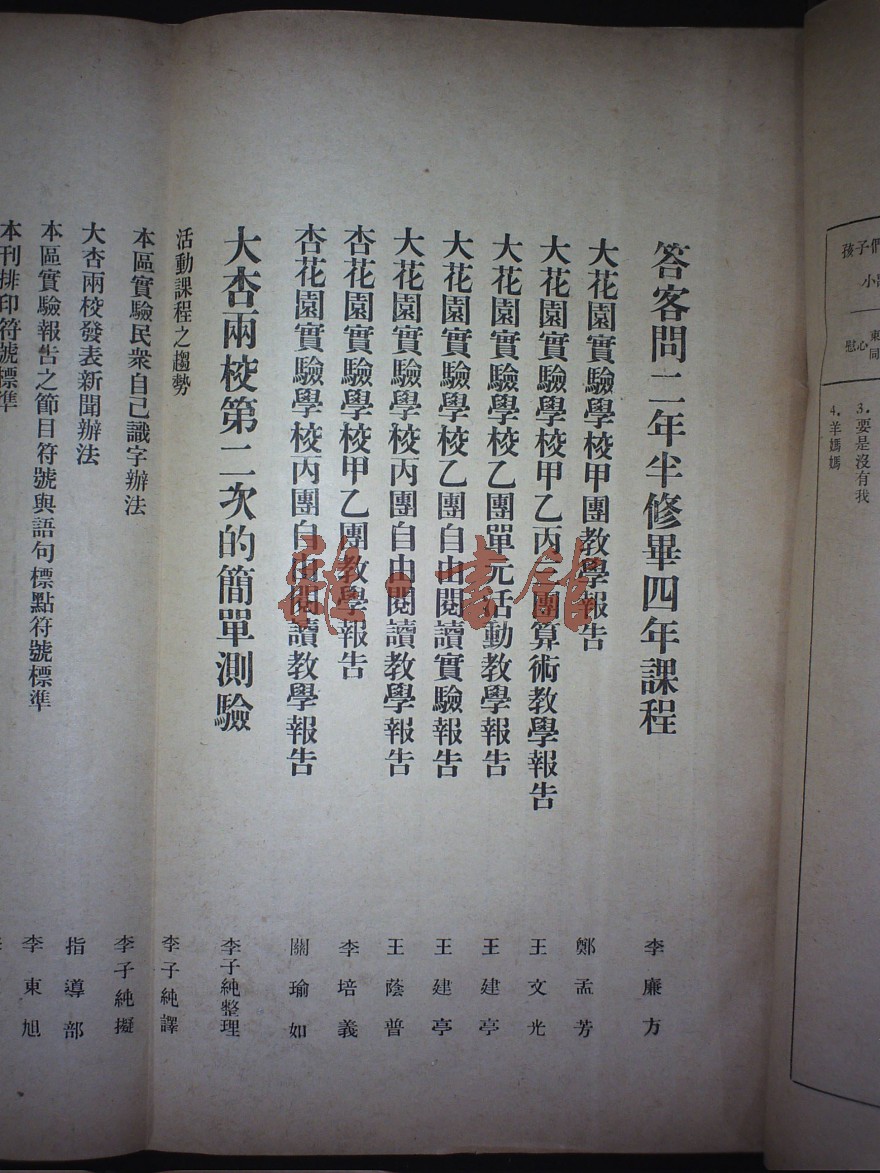 孩子們
慰心
3.要是沒有我
4.羊媽媽
答客問二年半修畢四年課程 李廉方
大花園實驗學校甲團教學報告 鄭孟芳
大花園實驗學校甲乙丙三團算術教學報告 王文光
大花園實驗學校乙團單元活動教學報告 王建亭
大花園實驗學校乙團自由閱讀實驗報告 王建亭
大花園實驗學校丙團自由閱讀教學報告 王蔭普
杏花園實驗學校甲乙團教學報告 李培義
杏花園實驗學校丙團自由閱讀教學報告 關瑜如
大杏兩校第二次的簡單測驗 李子純整理
活動課程之趨勢 李子純譯
本區實驗民衆自己識字辦法 李子純擬
大杏兩校發表新聞辦法 指導部
本區實驗報告之節目符號與語句標點符號標準 李東旭
本刊排印符號標準